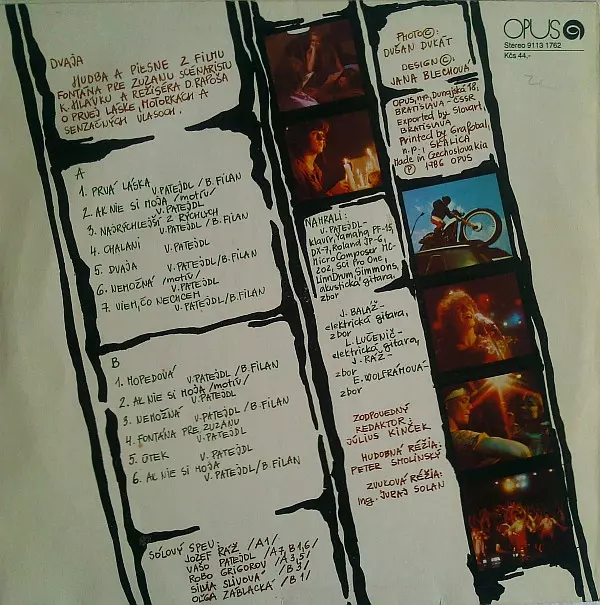 DVAJA
HUDBA A PIESNE Z FILMU
FONTÁNA PRE ZUZANU SCENÁRISTU
K. HLAVKU A REŽISÉRA D. RAPOŠA
O PRVEJ LÁSKE, MOTORKÁCH A
SENZAČNÝCH VLASOCH.
A
1. PRVÁ LÁSKA V. PATEJDL / B. FILAN
2. AK NIE SI MOJA /motív/
V. PATEJDL
3. NAJRÝCHLEJŠÍ Z RÝCHLYCH
V. PATEJDL / B. FILAN
4. CHALANI V. PATEJDL
5. DVAJA V. PATEJDL / B. FILAN
6. NEMOŽNÁ /motív/
V. PATEJDL
7. VIEM, ČO NECHCEM
V. PATEJDL / B. FILAN
B
1. MOPEDOVÁ V. PATEJDL / B. FILAN
2. AK NIE SI MOJA /motív/
V. PATEJDL
3. NEMOŽNÁ V. PATEJDL / B. FILAN
4. FONTÁNA PRE ZUZANU
V. PATEJDL
5. ÚTEK V. PATEJDL
6. AK NIE SI MOJA
V. PATEJDL / B. FILAN
SÓLOVÝ SPEV:
JOZEF RÁŽ /A1/
VAŠO PATEJDL /A7, B1,6/
ROBO GRIGOROV /A3,5/
SILVIA SLIVOVÁ /B3/
OĽGA ZÁBLACKÁ /B1/
NAHRALI:
V. PATEJDL-
klavír, Yamaha PF-15,
DX-7, Roland JP-6,
MicroComposer MC-
202, SCI Pro One,
LinnDrum, Simmons,
akustická gitara,
zbor
J. BALÁŽ-
elektrická gitara,
zbor
L. LUČENIČ-
elektrická gitara,
J. RÁŽ-
zbor
E. WOLFRÁMOVÁ-
zbor
ZODPOVEDNÝ
REDAKTOR:
JÚLIUS KINČEK
HUDOBNÁ RÉŽIA:
PETER SMOLINSKÝ
ZVUKOVÁ RÉŽIA:
Ing. JURAJ SOLAN
PHOTO ©:
DUŠAN DUKÁT
DESIGN ©:
JANA BLECHOVÁ
OPUS, n.p., Dunajská 18,
BRATISLAVA - ČSSR
Exported by Slovart,
BRATISLAVA
Printed by Grafobal,
n.p., SKALICA
Made in Czechoslovakia
Ⓟ 1986 OPUS
OPUS
Stereo 9113 1762
Kčs 44,-